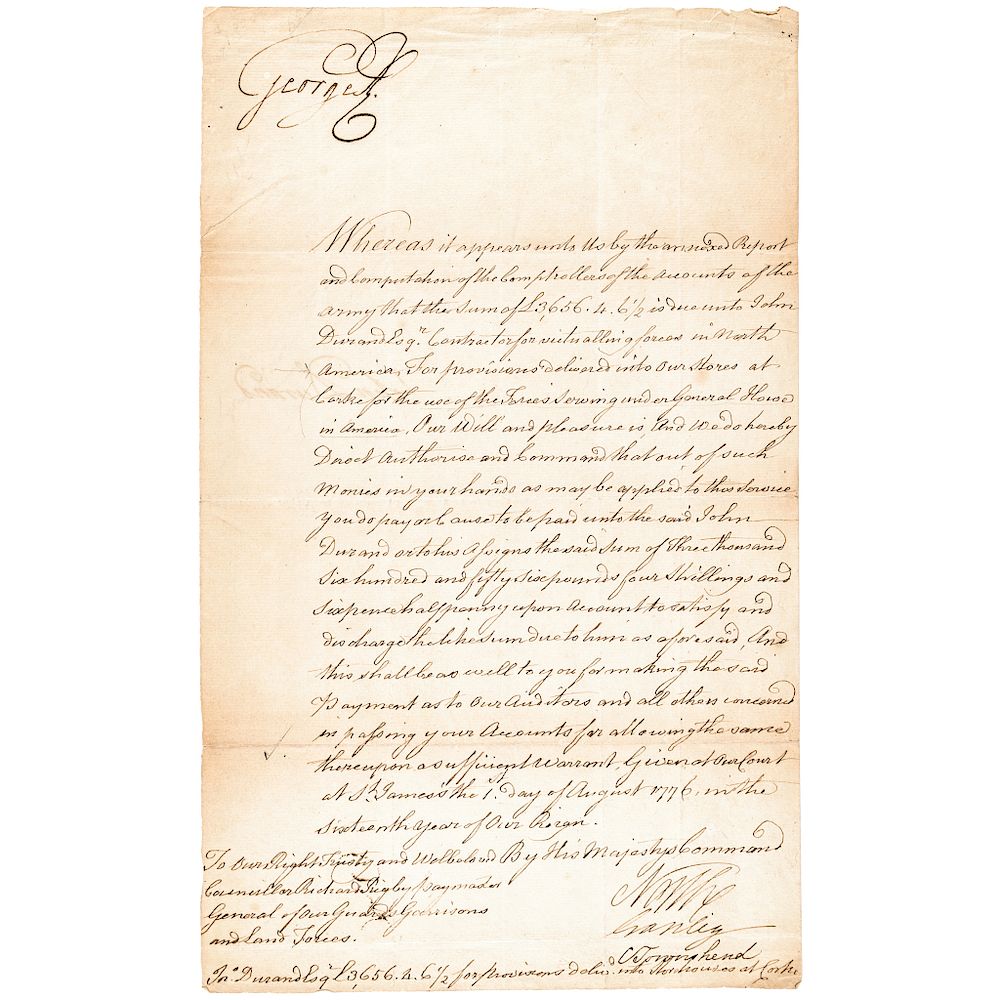 George R.
Whereas it appears unto Us by the annexed Report
and Computation of the Comptrollers of the Accounts of the
Army that the Sum of £3,656.4.6½ is due unto John
Durand Esqr. Contractor for victualling forces in North
America, For provisions delivered into Our Stores at
Corke for the use of the Forces Serving under General Howe
in America, Our Will and pleasure is, And We do hereby
Direct Authorise and Command that out of such
Monies in your hands as may be applied to this Service
you do pay or Cause to be paid unto the said John
Durand or to his Assigns the said Sum of Three thousand
Six hundred and fifty Six pounds four Shillings and
Sixpence halfpenny upon Account to satisfy and
discharge the like sum due to him as aforesaid, And
this shall be as well to you for making the said
Payment as to Our Auditors and all others concerned
in passing your Accounts for allowing the same
thereupon a sufficient Warrant, Given at Our Court
at St. James's the 1st. day of August 1776, in the
Sixteenth Year of Our Reign.
By His Majestys Command
To Our Right Trusty and Welbeloved
Councillor Richard Rigby Paymaster
General of Our Guards Garrisons
and Land Forces.
North
Cranley
C Townshend
Jno. Durand Esqr. £3,656.4.6½ for provisions delivd. into Storhouses at Corke